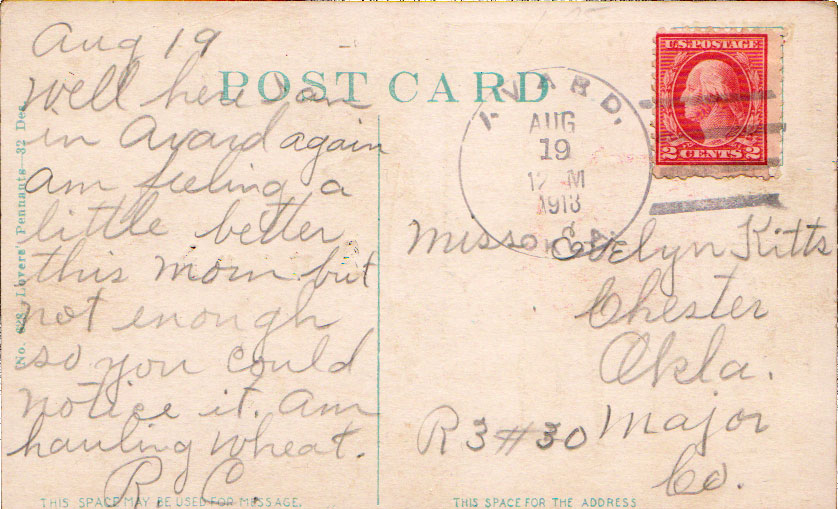 POST CARD
Aug 19
Well here I am
in Avard again
am feeling a
little better
this morn but
not enough
so you could
notice it. am
hauling wheat.
R. C.
No. 628 Lovers' Pennants—32 Des.
THIS SPACE MAY BE USED FOR MESSAGE.
AVARD,
AUG
19
12 M
1918
U.S. POSTAGE
2 CENTS 2
Miss Evelyn Kitts
Chester
Okla.
R 3 #30 Major
Co.
THIS SPACE FOR THE ADDRESS